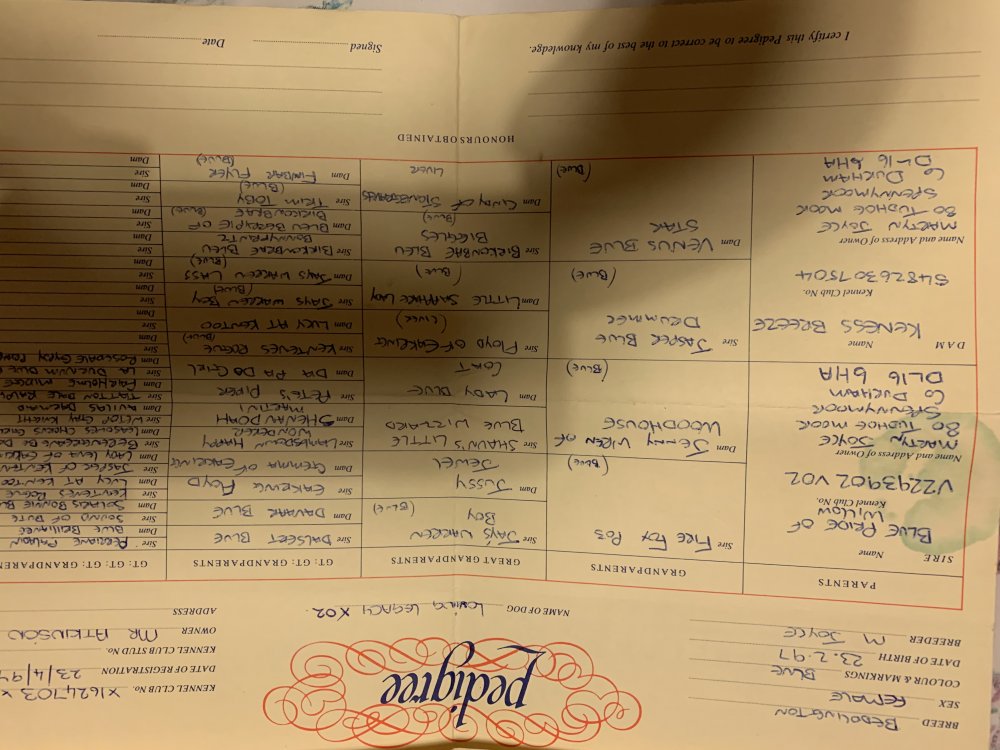 Pedigree
BREED BEDDLINGTON
SEX FEMALE
COLOUR & MARKINGS BLUE
DATE OF BIRTH 23.2.97
BREEDER M JOYCE
KENNEL CLUB NO. X1624703X
DATE OF REGISTRATION 23/4/97
KENNEL CLUB STUD No.
OWNER MR ATKINSON
ADDRESS
NAME OF DOG LOVING LEGACY X02.
PARENTS
GRANDPARENTS
GREAT GRANDPARENTS
GT: GRANDPARENTS
GT: GT: GRANDPARENTS
SIRE
Name
BLUE PRIDE OF
WILLOW
Kennel Club No.
V2293902 V02
Name and Address of Owner
MARTYN JOYCE
80 TUDHOE MOOR
SPENNYMOOR
CO DURHAM
DL16 6HA
DAM
Name
KENESS BREEZE
Kennel Club No.
Name and Address of Owner
MARTYN JOYCE
80 TUDHOE MOOR
SPENNYMOOR
CO DURHAM
DL16 6HA
Sire FIRE FOX
(BLUE)
Dam JENNY WREN OF
WOODHOUSE
(BLUE)
Sire JASPER BLUE
DRUMMER
(BLUE)
Dam VENUS BLUE
STAR
(BLUE)
Sire JAYS WARREN
BOY
(BLUE)
Dam JUSSY
JEWEL
Sire SHAUN'S LITTLE
BLUE WIZZARD
Dam LADY BLUE
COAT
Sire FLOYD OF EAKRING
(LIVER)
Dam LITTLE SAPPHIRE LADY
(BLUE)
Sire BIRKONBRAE BLEU
BIGGLES
(BLUE)
Dam CINDY OF
LIVER
Sire DALSERT BLUE
Dam DAVAAR BLUE
Sire EAKRING FLOYD
Dam GEMMA OF EAKRING
Sire LAMBSDOWN HAPPY
WONDERER
Dam SHENANDOAH
MARTINI
Sire PETE'S PIPER
Dam DA PA DO GIEL
Sire KENTENES ROGUE
Dam LUCY AT KENTOO
Sire JAYS WARREN BOY
(BLUE)
Dam JAYS WARREN LASS
(BLUE)
Sire BLEU
Dam BLEU OF
BIRKONBRAE (BLUE)
Sire TRIM TOBY
(BLUE)
Dam FINNBAR FLYER
(BLUE)
Sire PERRIANE PALADIN
Dam BLUE BRILLIANCE
Sire SOUND OF BUTE
Dam BONNIE
Sire KENTENES ROGUE
Dam LUCY AT KENTOO
Sire JASPER OF
Dam LADY LENA OF
Sire
Dam
Sire WILTOP GAY KNIGHT
Dam
Sire TARTTON DALE RALPH
Dam FAIRHOLME MIDGEE
Sire LA DURHAM BLUE
Dam
Sire
Dam
Sire
Dam
Sire
Dam
Sire
Dam
Sire
Dam
Sire
Dam
Sire
Dam
HONOURS OBTAINED
I certify this Pedigree to be correct to the best of my knowledge.
Signed
Date